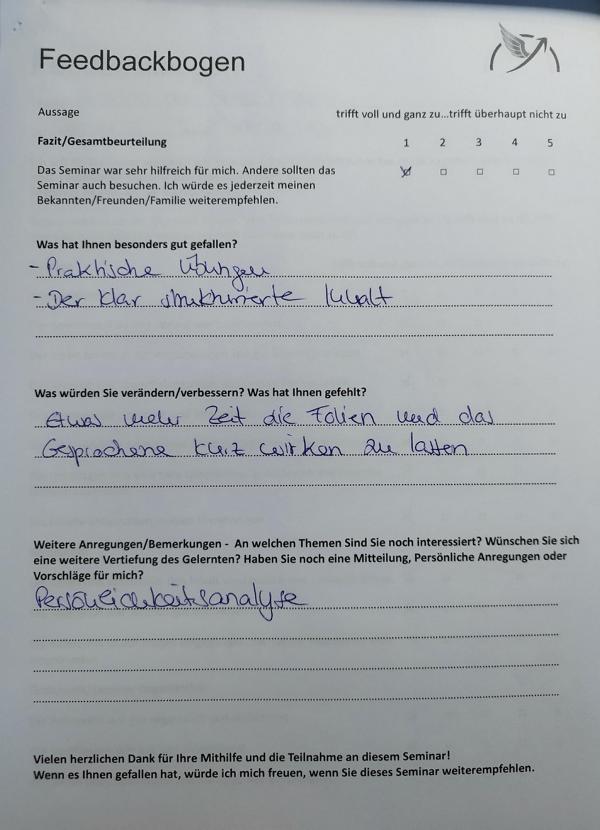 Feedbackbogen
Aussage trifft voll und ganz zu...trifft überhaupt nicht zu
Fazit/Gesamtbeurteilung 1 2 3 4 5
Das Seminar war sehr hilfreich für mich. Andere sollten das
Seminar auch besuchen. Ich würde es jederzeit meinen
Bekannten/Freunden/Familie weiterempfehlen.
Was hat Ihnen besonders gut gefallen?
- Praktische Übungen
- Der klar strukturierte Inhalt
Was würden Sie verändern/verbessern? Was hat Ihnen gefehlt?
Etwas mehr Zeit die Folien und das
Gesprochene kurz wirken zu lassen
Weitere Anregungen/Bemerkungen - An welchen Themen Sind Sie noch interessiert? Wünschen Sie sich
eine weitere Vertiefung des Gelernten? Haben Sie noch eine Mitteilung, Persönliche Anregungen oder
Vorschläge für mich?
Persönlichkeitsanalyse
Vielen herzlichen Dank für Ihre Mithilfe und die Teilnahme an diesem Seminar!
Wenn es Ihnen gefallen hat, würde ich mich freuen, wenn Sie dieses Seminar weiterempfehlen.